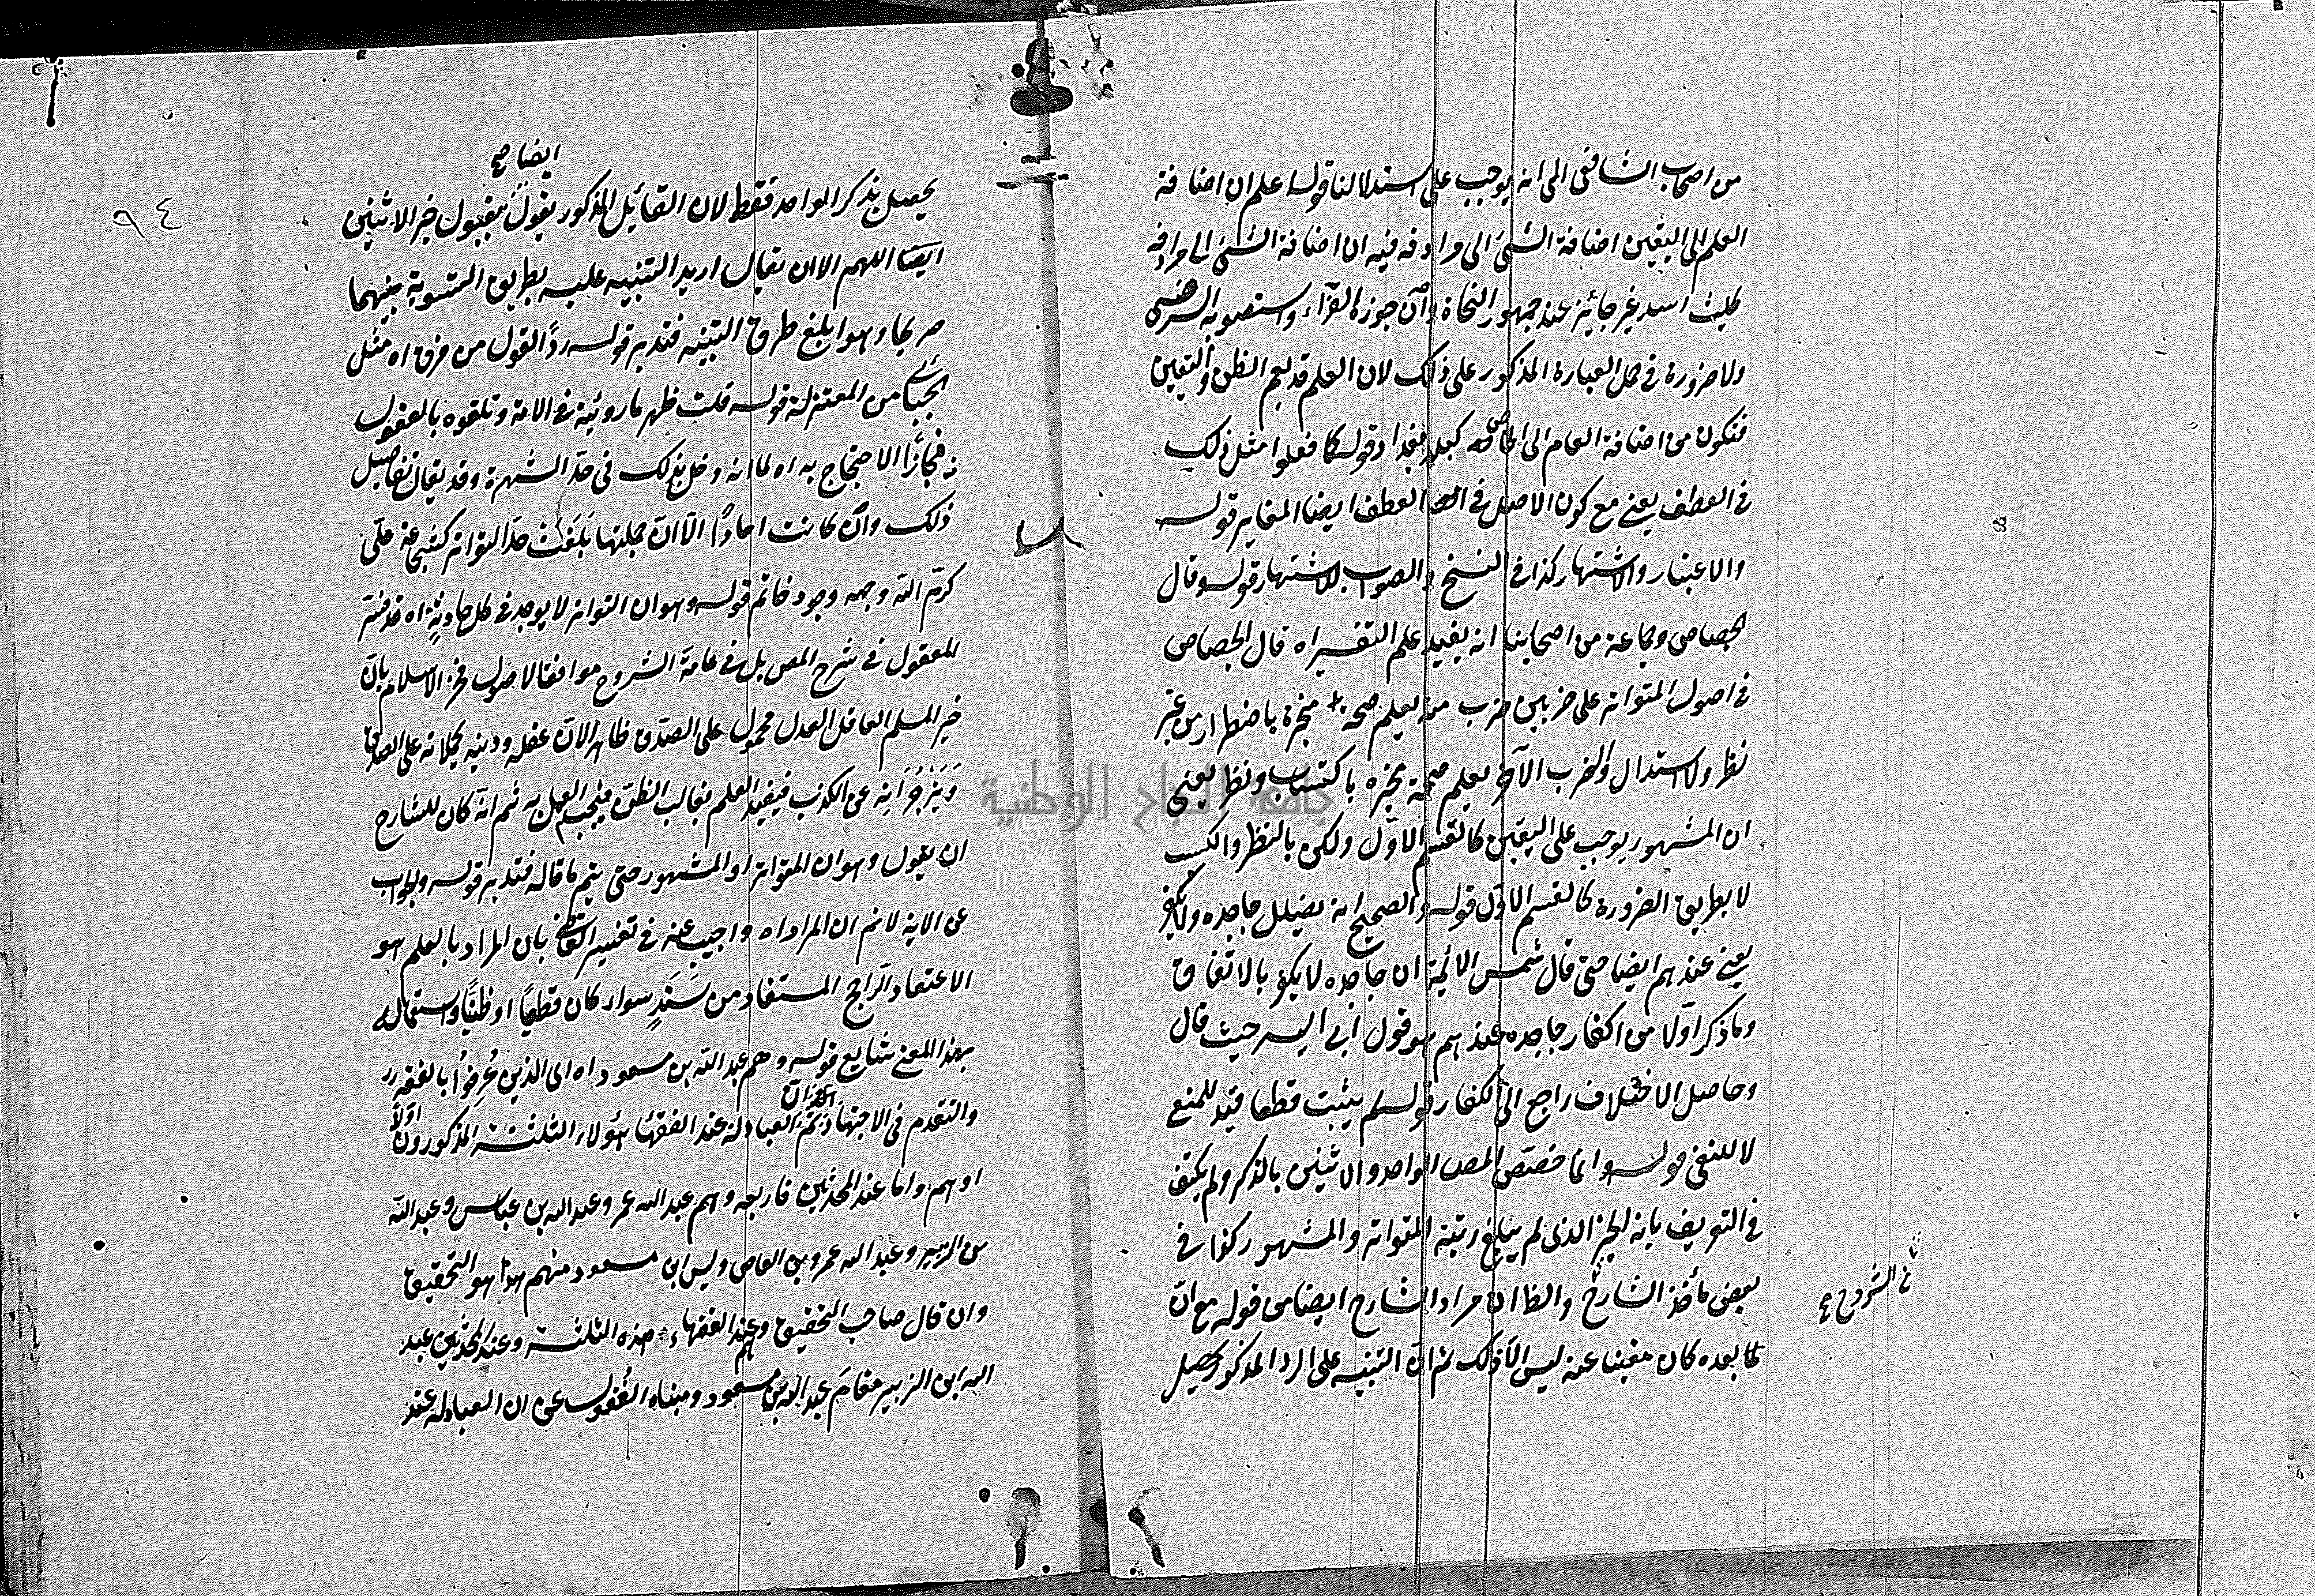 من اصحاب الشافعى الى انه يوجب على استدلالنا قوله علم ان اضافة
العلم الى اليقين اضافة الشئ الى مرادفه فيه ان اضافة الشئ الى مرادفه
كليث اسد غير جائز عند جمهور النحاة وان جوزه الفرّاء واستصوبه الرضى
ولا ضرورة فى حمل العبارة المذكور على ذلك لان العلم قد يعم الظن واليقين
فتكون من اضافة العام الى الخاص كبلد بغداد قوله كما فعلوا مثل ذلك
فى العطف يعنى مع كون الاصل فى العطف ايضا المغاير قوله
والاعتبار والاشتهار كذا فى النسخ والصواب للاشتهار قوله وقال
الجصاص وجماعة من اصحابنا انه يفيد علم التفسير اه قال الجصاص
فى اصول المتواتر على ضربين ضرب منه يعلم صحة مخبره باضطرار من غير
نظر ولا استدال والضرب الآخر يعلم صحة مخبره باكتساب ونظر يعنى
ان المشهور يوجب على اليقين كالقسم الاوّل ولكن بالنظر والكسب
لا بطريق الضرورة كالقسم الاوّل قوله والصحيح انه يضلل جاحده ولا يكفر
يعنى عندهم ايضا حتى قال شمس الائمة ان جاحده لا يكفر بالاتفاق
وما ذكر اوّلا من اكفار جاحده عندهم هو قول ابى اليسر حيث قال
وحاصل الاختلاف راجع الى الكفار قوله لم يثبت قطعا قيد للمنع
لا للنفى قوله وانما خصّص المص الواحد والاثنين بالذكر ولم يكتف
فى التعريف بانه الخبر الذى لم يبلغ رتبة المتواتر والمشهور ركوا فى
بعض مأخذ الشارح والظ ان مراد الشارح ايضا من قوله مع انّ
ما بعده كان مغنيا عنه ليس الّا ذلك ثم انّ التنبيه على الرد المذكور يحصل
فى الشروح
جامعة النجاح الوطنية
٩٤
ايضا صح
يحصل بذكر الواحد فقط لان القائل المذكور يقول بقبول خبر الاثنين
ايضا اللهم الا ان يقال اريد التنبيه عليه بطريق التسوية بينهما
صريحا وهو ابلغ طرق التنبيه فتدبر قوله ردّا لقول من فرق اه مثل
الجبّائى من المعتزلة قوله قلت ظهر ما روئية فى الامة وتلقوه بالقبول
فجاز الاحتجاج به اه لما انه دخل بذلك فى حدّ الشهرة وقد يقال تفاصيل
ذلك وان كانت احادًا الّا انّ جملتها بَلَغَتْ حدّ التواتر كشجاعة على
كرّم الله وجهه وجود خاتم قوله وهو ان التواتر لا يوجد فى كل حادثة اه قد فسّر
المعقول فى شرح المص بل فى عامة الشروح موافقا لاصول فخر الاسلام بانّ
خبر المسلم العاقل العدل محمول على الصدق ظاهرا لانّ عقله ودينه يحملانه على الصدق
وَيَزْجُرَانِه عن الكذب فيفيد العلم بغالب الظن فيجب العمل به ثم انّه كان للشارح
ان يقول وهو ان المتواتر او المشهور حتى يتم ما قاله فتدبر قوله والجواب
عن الاية لانم ان المراد اه واجيب عنه فى تفسير القاضى بان المراد بالعلم هو
الاعتقاد الراجح المستفاد من سَنَدٍ سواء كان قطعيا او ظنيّا واستعماله
بهذا المعنى شايع قوله وهم عبد الله بن مسعود اه اى الذين عُرِفوُا بالفقه
والتقدم فى الاجتهاد ثم العبادلة عند الفقهاء هؤلاء الثلثة المذكورون اوّلا
او هم واما عند المحدثين فاربعه وهم عبد الله عمر وعبد الله بن عباس وعبد الله
بن الزبير وعبد الله عمرو بن العاص وليس ابن مسعود منهم هذا هو التحقيق
وان قال صاحب التحقيق وعند الفقهاء هم هذه الثلثة وعند المحدثين عبد
الله ابن الزبير مقامَ عبد الله بن مسعود ومبناه الغُفول عن ان العبادلة عند